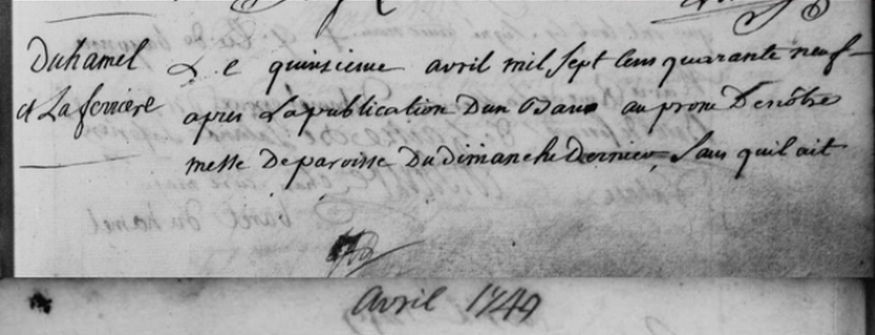 Duhamel
et Laferriere
Le quinsieme avril mil sept cens quarante neuf
apres La publication Dun Ban au prone De nôtre
messe De paroisse Du dimanche Dernier, sans quil ait
avril 1749